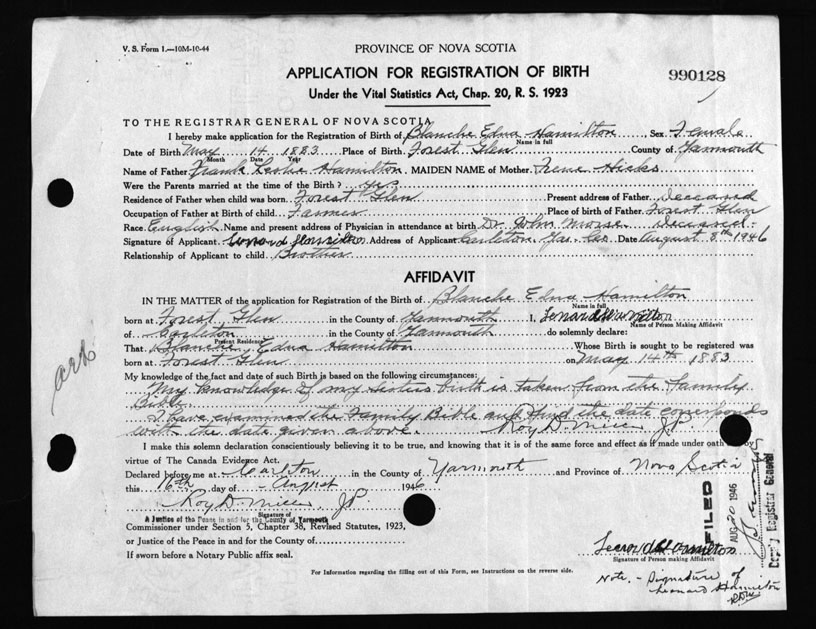 V. S. Form 1.—10M-10-44
PROVINCE OF NOVA SCOTIA
APPLICATION FOR REGISTRATION OF BIRTH
990128
Under the Vital Statistics Act, Chap. 20, R. S. 1923
TO THE REGISTRAR GENERAL OF NOVA SCOTIA
I hereby make application for the Registration of Birth of Blanche Edna Hamilton, Sex Female
Name in full
Date of Birth May 14 1883 Place of Birth Forest Glen County of Yarmouth
Month Date Year
Name of Father Frank Leslie Hamilton, MAIDEN NAME of Mother Irene Hicks
Were the Parents married at the time of Birth? yes
Residence of Father when child was born Forest Glen Present address of Father Deceased
Occupation of Father at Birth of child Farmer Place of birth of Father Forest Glen
Race English Name and present address of Physician in attendance at birth Dr John Morse Deceased
Signature of Applicant Leonard Hamilton Address of Applicant Carleton Yar. Co. Date August 8th 1946
Relationship of Applicant to child Brother
AFFIDAVIT
IN THE MATTER of the application for Registration of the Birth of Blanche Edna Hamilton
Name in full
born at Forest Glen in the County of Yarmouth I, Leonard Hamilton
Name of Person Making Affidavit
of Carleton in the County of Yarmouth do solemnly declare:
Present Residence
That Blanche Edna Hamilton Whose Birth is sought to be registered was
born at Forest Glen on May 14th 1883
My knowledge of the fact and date of such Birth is based on the following circumstances:
My knowledge of my sisters birth is taken from the family
Bible
I have examined the Family Bible and find the date corresponds
with the date given above Roy D. JP.
I make this solemn declaration conscientiously believing it to be true, and knowing that it is of the same force and effect as if made under oath by
virtue of The Canada Evidence Act.
Declared before me at Carlton in the County of Yarmouth and Province of Nova Scotia
this 16th day of August 1946
Roy D. JP
Signature of
A Justice of the Peace in and for the County of Yarmouth
Commissioner under Section 5, Chapter 38, Revised Statutes, 1923,
or Justice of the Peace in and for the County of
If sworn before a Notary Public affix seal.
FILED
AUG 20 1946
Deputy Registrar General
Leonard Hamilton
Signature of Person making Affidavit
For Information regarding the filling out of this Form, see Instructions on the reverse side.
Note - Signature of
Leonard Hamilton